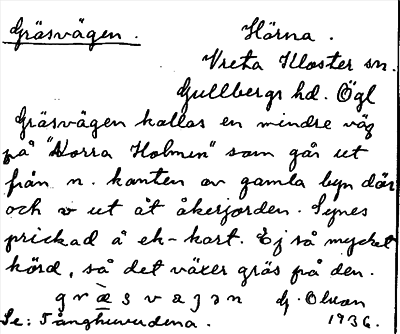 Gräsvägen. Hörna.
Vreta Kloster sn.
Gullbergs hd. Ögl
Gräsvägen kallas en mindre väg
på "Norra Holmen" som går ut
från n. kanten av gamla byn där
och v ut åt åkerjorden. Synes
prickad å ek-kart. Ej så mycket
körd, så det växer gräs på den.
g r æ s v a g ə n G. Olson
Se: Tånghuvudena. 1936.